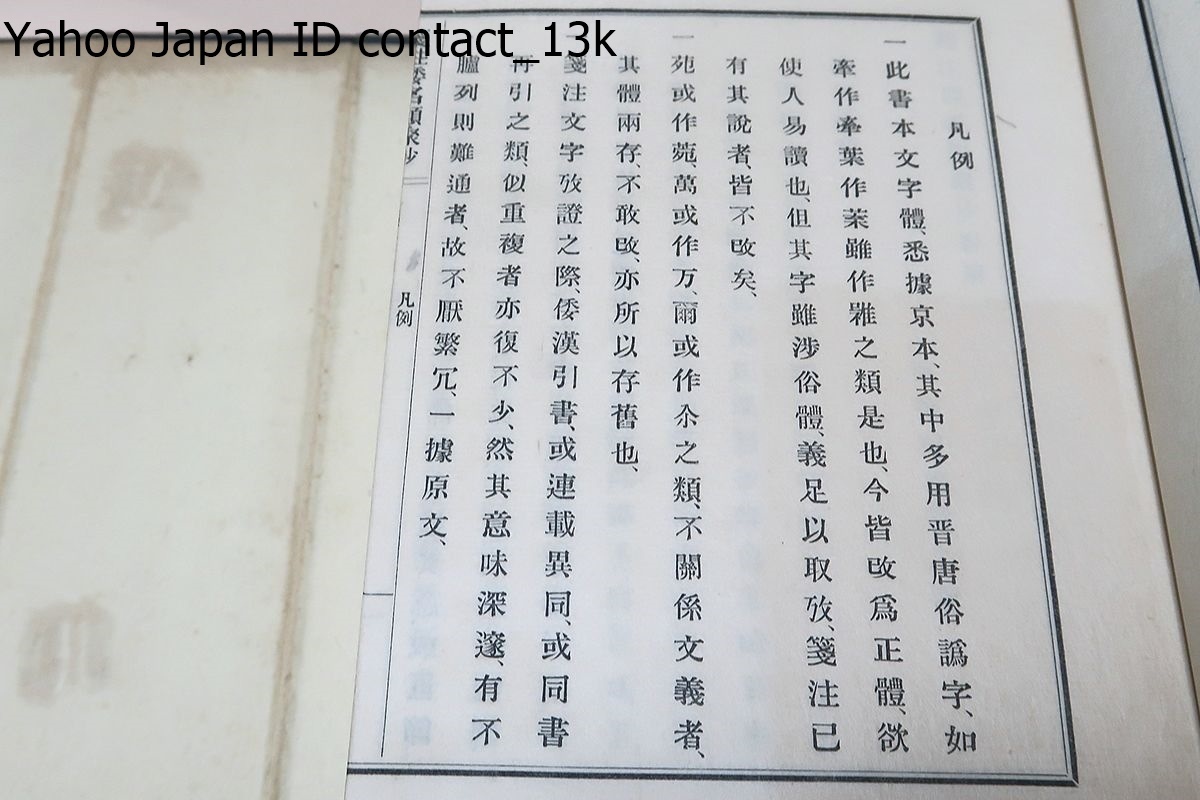 Yahoo Japan ID contact_13k
凡例
一此書本文字體、悉據京本、其中多用晋唐俗譌字、如
牽作牽葉作䒶雖作雖之類是也、今皆改爲正體、欲
使人易讀也、但其字雖涉俗體、義足以取攷、箋注已
有其說者、皆不改矣、
一苑或作菀、萬或作万、爾或作尒之類、不關係文義者、
其體兩存、不敢改、亦所以存舊也、
一箋注文字攷證之際、倭漢引書、或連載異同、或同書
再引之類、似重複者亦復不少、然其意味深邃、有不
臚列則難通者、故不厭繁冗、一據原文、
箋注倭名類聚抄
凡例